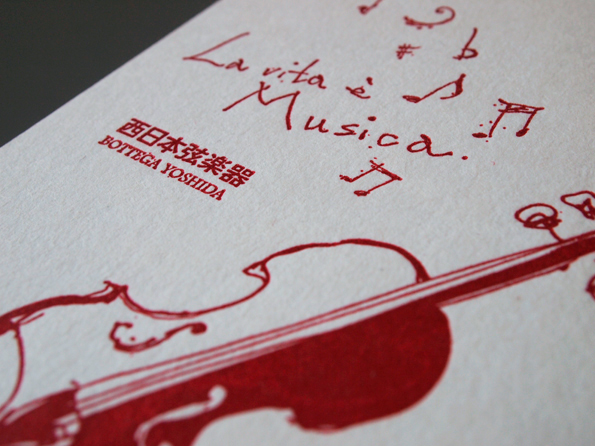 La vita è
Musica.
西日本弦楽器
BOTTEGA YOSHIDA